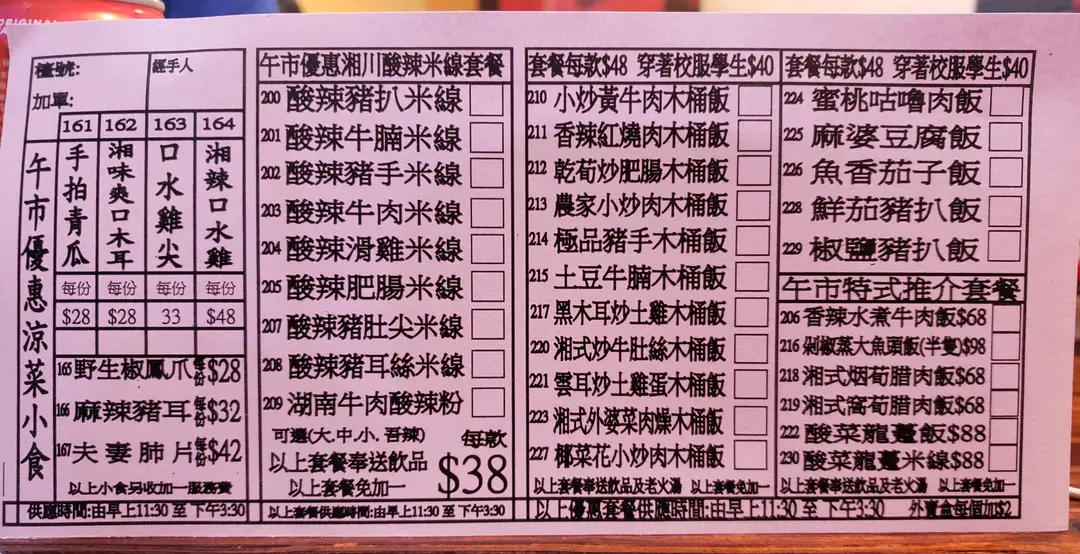 ORIGINAL
檯號:
經手人
加單:
161 162 163 164
午市優惠涼菜小食
手拍青瓜
湘味爽口木耳
口水雞尖
湘辣口水雞
每份 每份 每份 每份
$28 $28 33 $48
165 野生椒鳳爪 每份 $28
166 麻辣豬耳 每份 $32
167 夫妻肺片 每份 $42
以上小食另收加一服務費
供應時間:由早上11:30 至 下午3:30
午市優惠湘川酸辣米線套餐
200 酸辣豬扒米線
201 酸辣牛腩米線
202 酸辣豬手米線
203 酸辣牛肉米線
204 酸辣滑雞米線
205 酸辣肥腸米線
207 酸辣豬肚尖米線
208 酸辣豬耳絲米線
209 湖南牛肉酸辣粉
可選(大.中.小. 吾辣) 每款
以上套餐奉送飲品 $38
以上套餐免加一
以上套餐供應時間:由早上11:30 至 下午3:30
套餐每款$48 穿著校服學生$40
210 小炒黃牛肉木桶飯
211 香辣紅燒肉木桶飯
212 乾荀炒肥腸木桶飯
213 農家小炒肉木桶飯
214 極品豬手木桶飯
215 土豆牛腩木桶飯
217 黑木耳炒土雞木桶飯
220 湘式炒牛肚絲木桶飯
221 雲耳炒土雞蛋木桶飯
223 湘式外婆菜肉燥木桶飯
227 椰菜花小炒肉木桶飯
以上套餐奉送飲品及老火湯 以上套餐免加一
套餐每款$48 穿著校服學生$40
224 蜜桃咕嚕肉飯
225 麻婆豆腐飯
226 魚香茄子飯
228 鮮茄豬扒飯
229 椒鹽豬扒飯
午市特式推介套餐
206 香辣水煮牛肉飯$68
216 剁椒蒸大魚頭飯(半隻)$98
218 湘式烟荀腊肉飯$68
219 湘式窩荀腊肉飯$68
222 酸菜龍躉飯$88
230 酸菜龍躉米線$88
以上套餐奉送飲品及老火湯 以上套餐免加一
以上優惠套餐供應時間:由早上11:30 至 下午3:30 外賣盒每個加$2